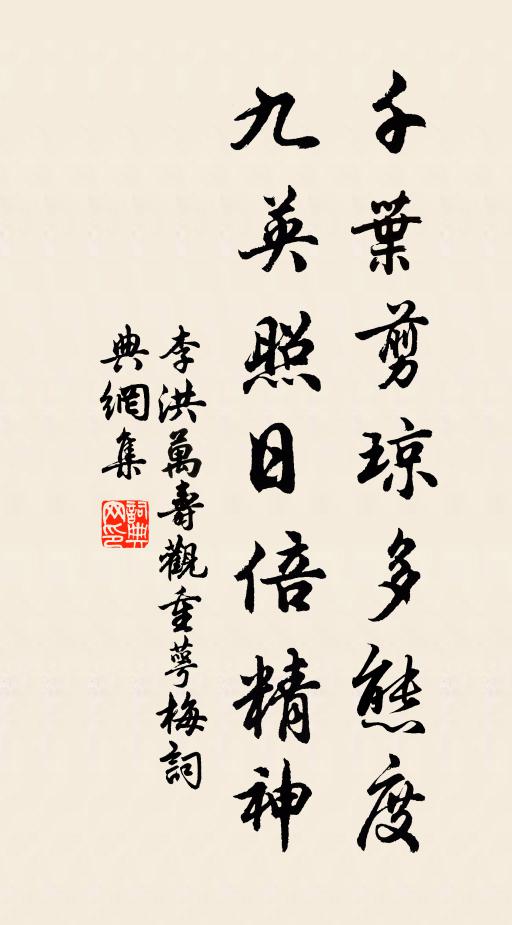 千葉剪瓊多態度
九英照日倍精神
李洪萬壽觀重萼梅詞
典網集
詞典網印